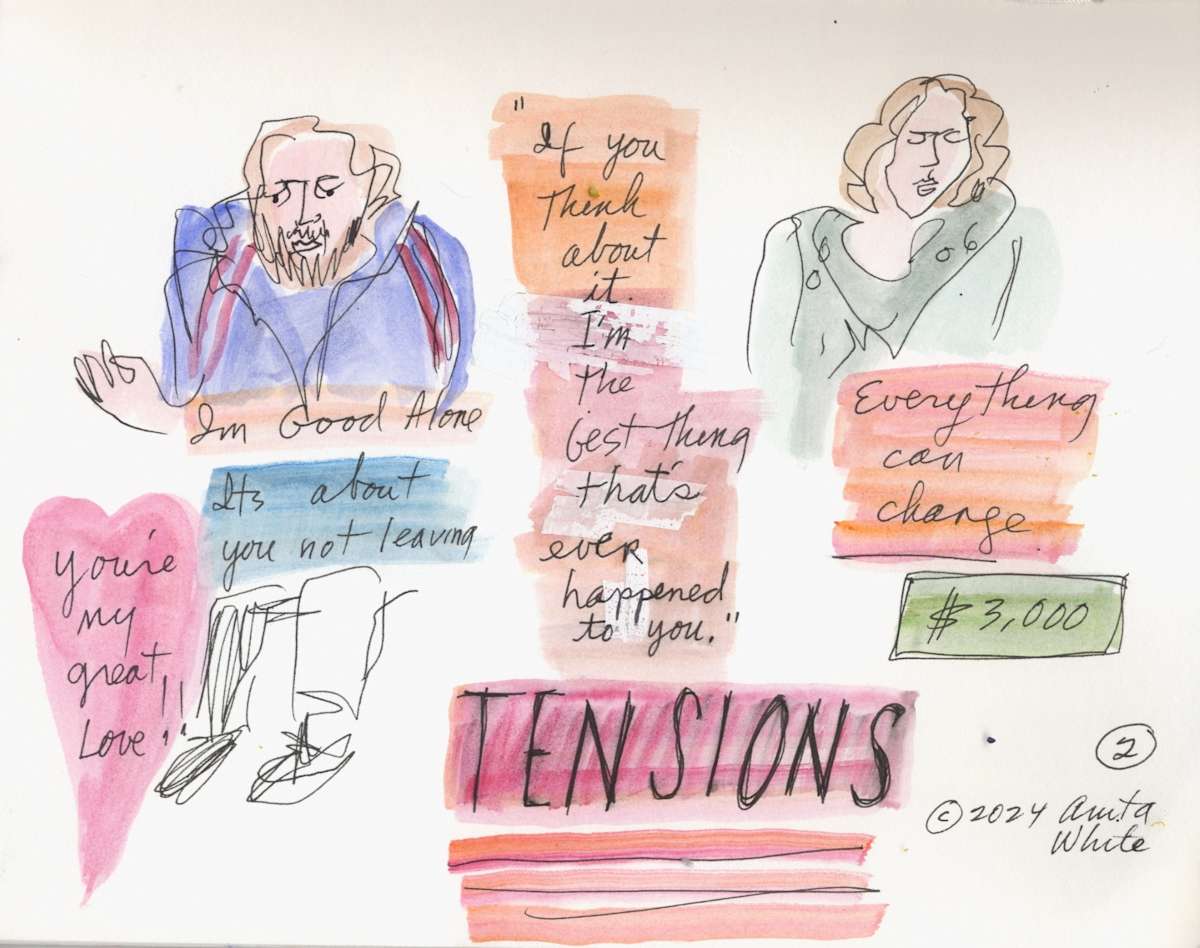 "If you
Think
about
it.
I'm
the
best thing
that's
ever
happened
to you."
Im Good Alone
Its about
you not leaving
You're
my
great
Love!!
Everything
can
change
$3,000
TENSIONS
2
©2024 Anita
White